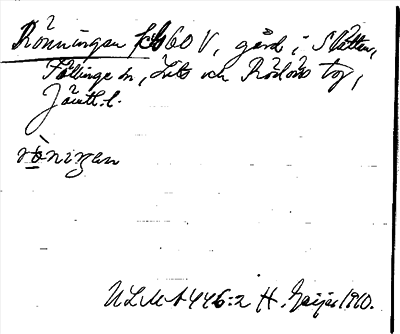 Rönningen 60 V, gård i Slåtten,
Föllinge sn, Lits och Rödöns tg,
Jämtl. l.
röningan
ULMA 446:2 H. Geijer 1910.